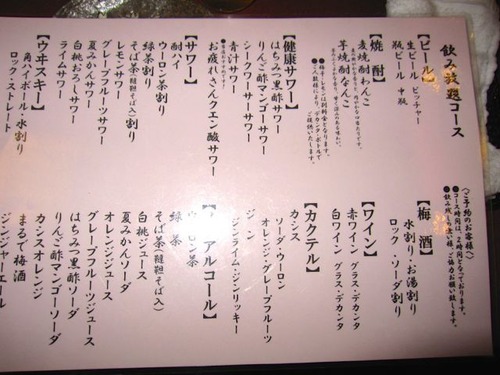 飲み放題コース
【ビール】
生ビール ピッチャー
瓶ビール 中瓶
【焼酎】
麦焼酎なんこ
芋焼酎なんこ
【健康サワー】
はちみつ黒酢サワー
りんご酢マンゴーサワー
シークワーサーサワー
青汁サワー
お疲れさんクエン酸サワー
【サワー】
酎ハイ
ウーロン茶割り
緑茶割り
そば茶(韃靼そば入)割り
レモンサワー
グレープフルーツサワー
夏みかんサワー
白桃おろしサワー
ライムサワー
【ウヰスキー】
角ハイボール・水割り
ロック・ストレート
〈ご予約のお客様〉
●コース時間は、2時間となっております。
【梅酒】
水割り・お湯割り
ロック・ソーダ割り
【ワイン】
赤ワイン グラス・デカンタ
白ワイン グラス・デカンタ
【カクテル】
カシス
ソーダ・ウーロン
オレンジ・グレープフルーツ
ジン
ジンライム・ジンリッキー
アルコール】
ウーロン茶
緑茶
そば茶(韃靼そば入)
白桃ジュース
夏みかんソーダ
オレンジジュース
グレープフルーツジュース
はちみつ黒酢ソーダ
りんご酢マンゴーソーダ
カシスオレンジ
まるで梅酒
ジンジャーエール